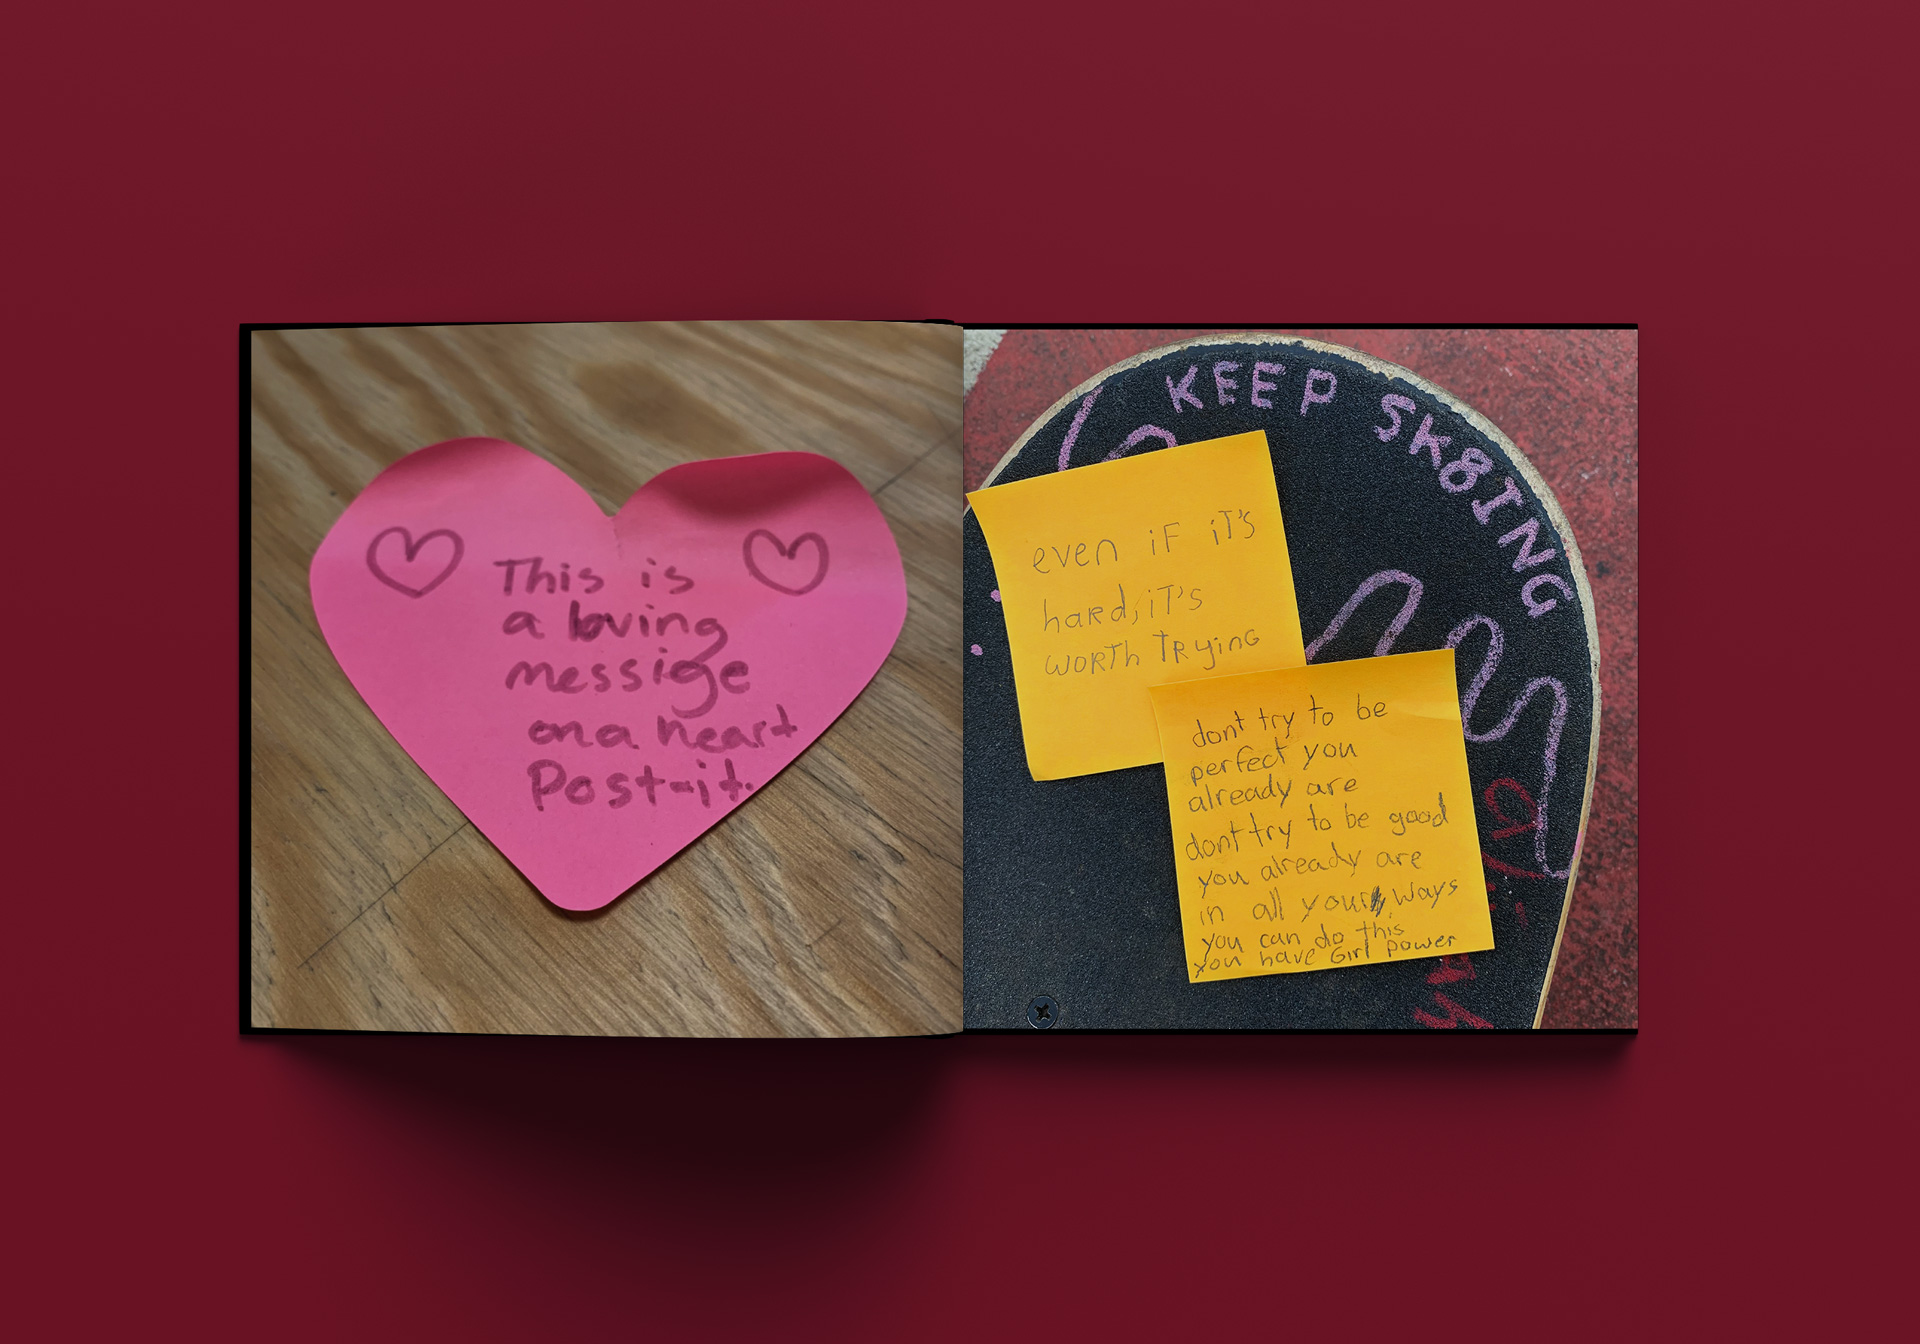 This is
a loving
messige
on a heart
Post-it.
KEEP SK8ING
even iF iT's
haRd, iT's
woRTh TRying
dont try to be
perfect you
already are
dont try to be good
you already are
in all your ways
you can do this
you have Girl power